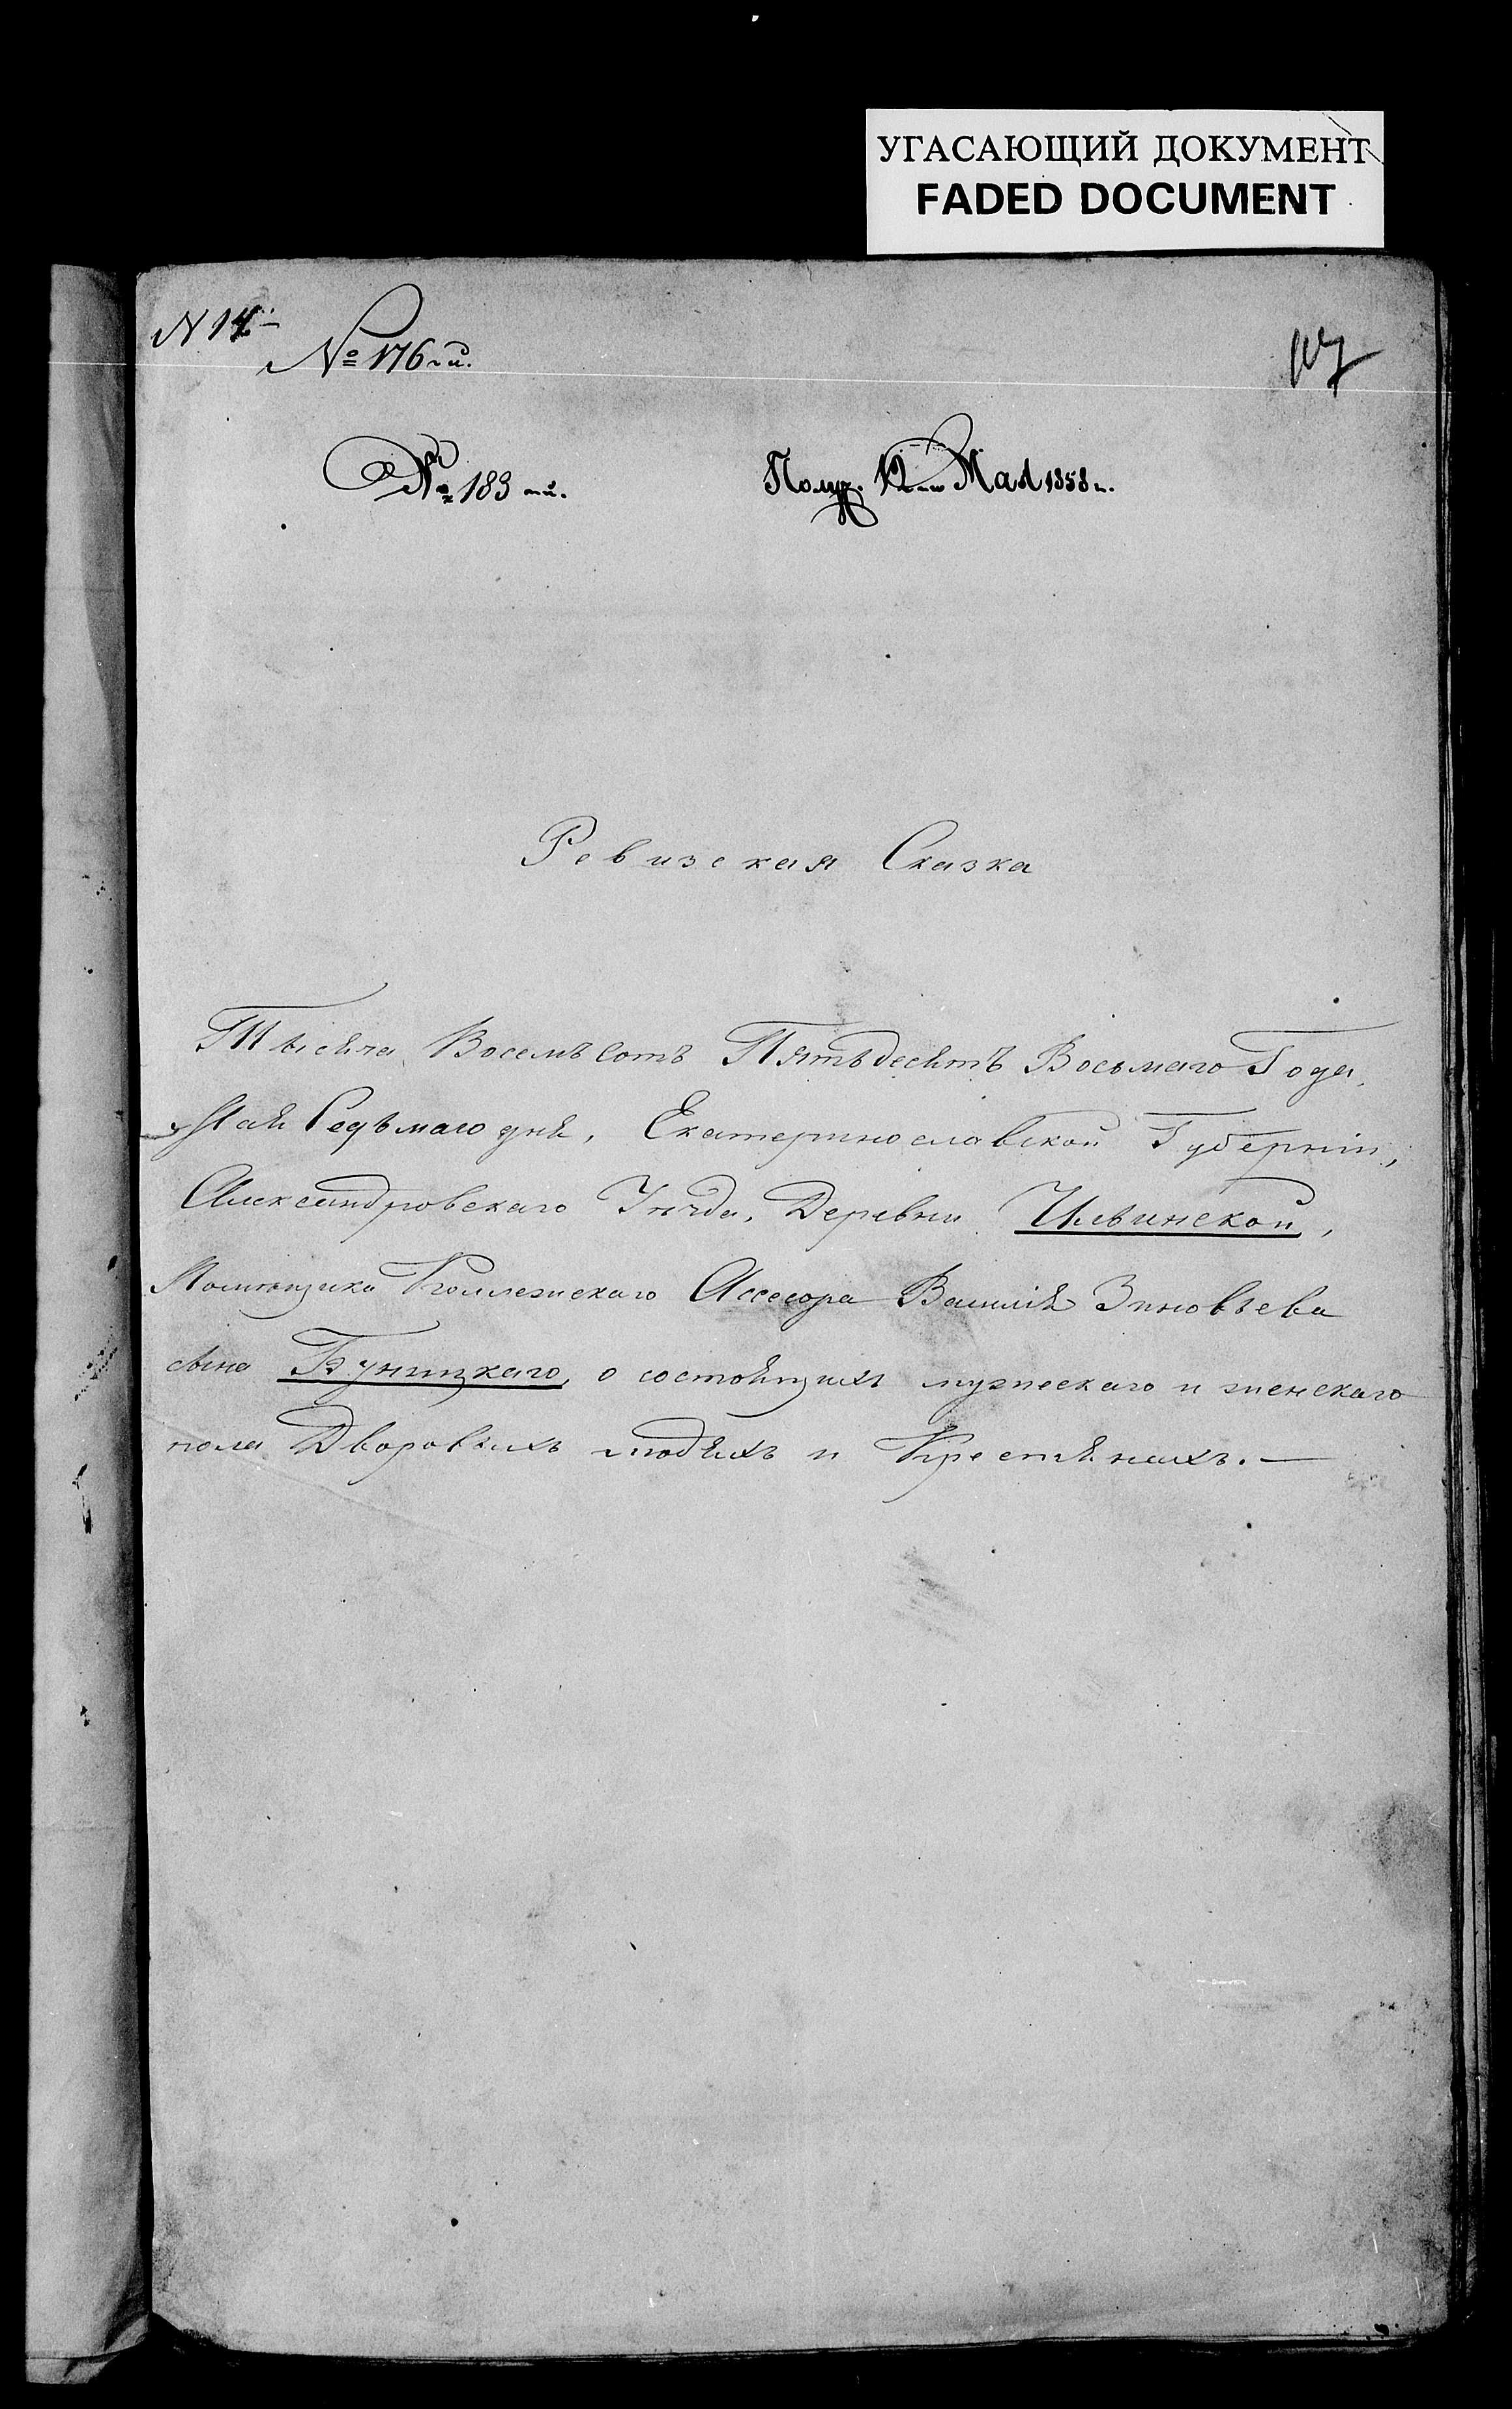 УГАСАЮЩИЙ ДОКУМЕНТ
FADED DOCUMENT
N 14
№ 176й.
№ 183й.
Получ. 12го Мая 1858г.
Ревизская Сказка
Тысяча Восемъ Сотъ Пятьдесятъ Восьмаго Года,
Мая Седьмаго дня, Екатеринославской Губерніи,
Александровскаго Уѣзда, Деревни Ильвинской,
Помѣщика Коллежскаго Ассесора Василія Зиновьева
сына Буницкаго, о состоящихъ мужескаго и женскаго
пола Дворовыхъ людяхъ и Крестьянахъ. —